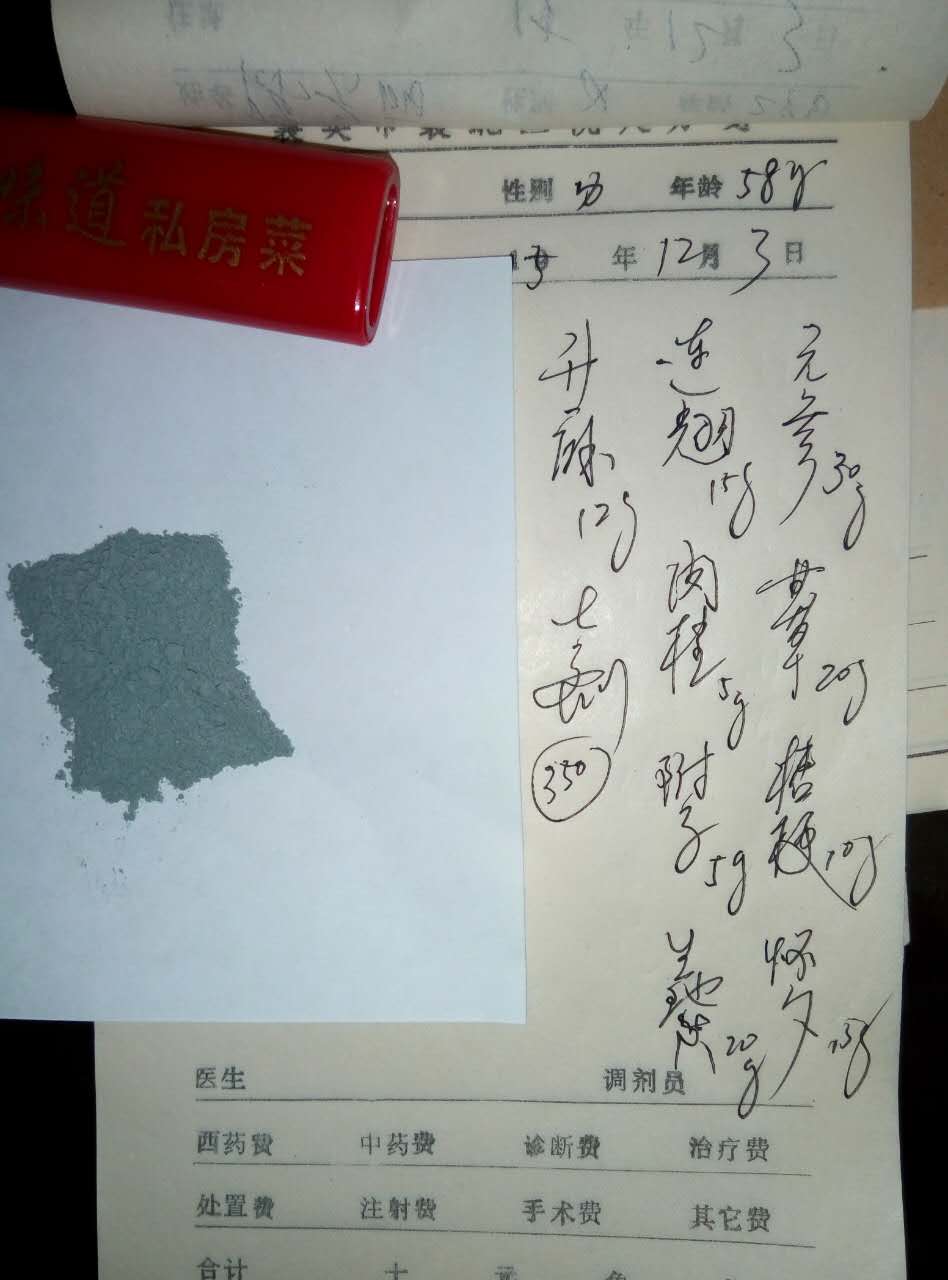 味道私房菜
性别 男 年龄 58岁
年 12月 3日
元参 30g
甘草 20g
桔梗 10g
怀夕 15g
连翘 15g
肉桂 5g
附子 5g
生地炭 20g
升麻 12g
七剂
350
医生 调剂员
西药费 中药费 诊断费 治疗费
处置费 注射费 手术费 其它费
合计 十 元 角